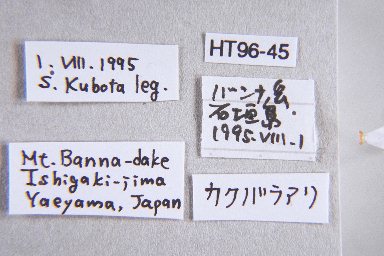 1. VIII. 1995
S. Kubota leg.
HT96-45
バンナ岳
石垣島.
1995-VIII-1
Mt. Banna-dake
Ishigaki-jima
Yaeyama, Japan
カクバラアリ